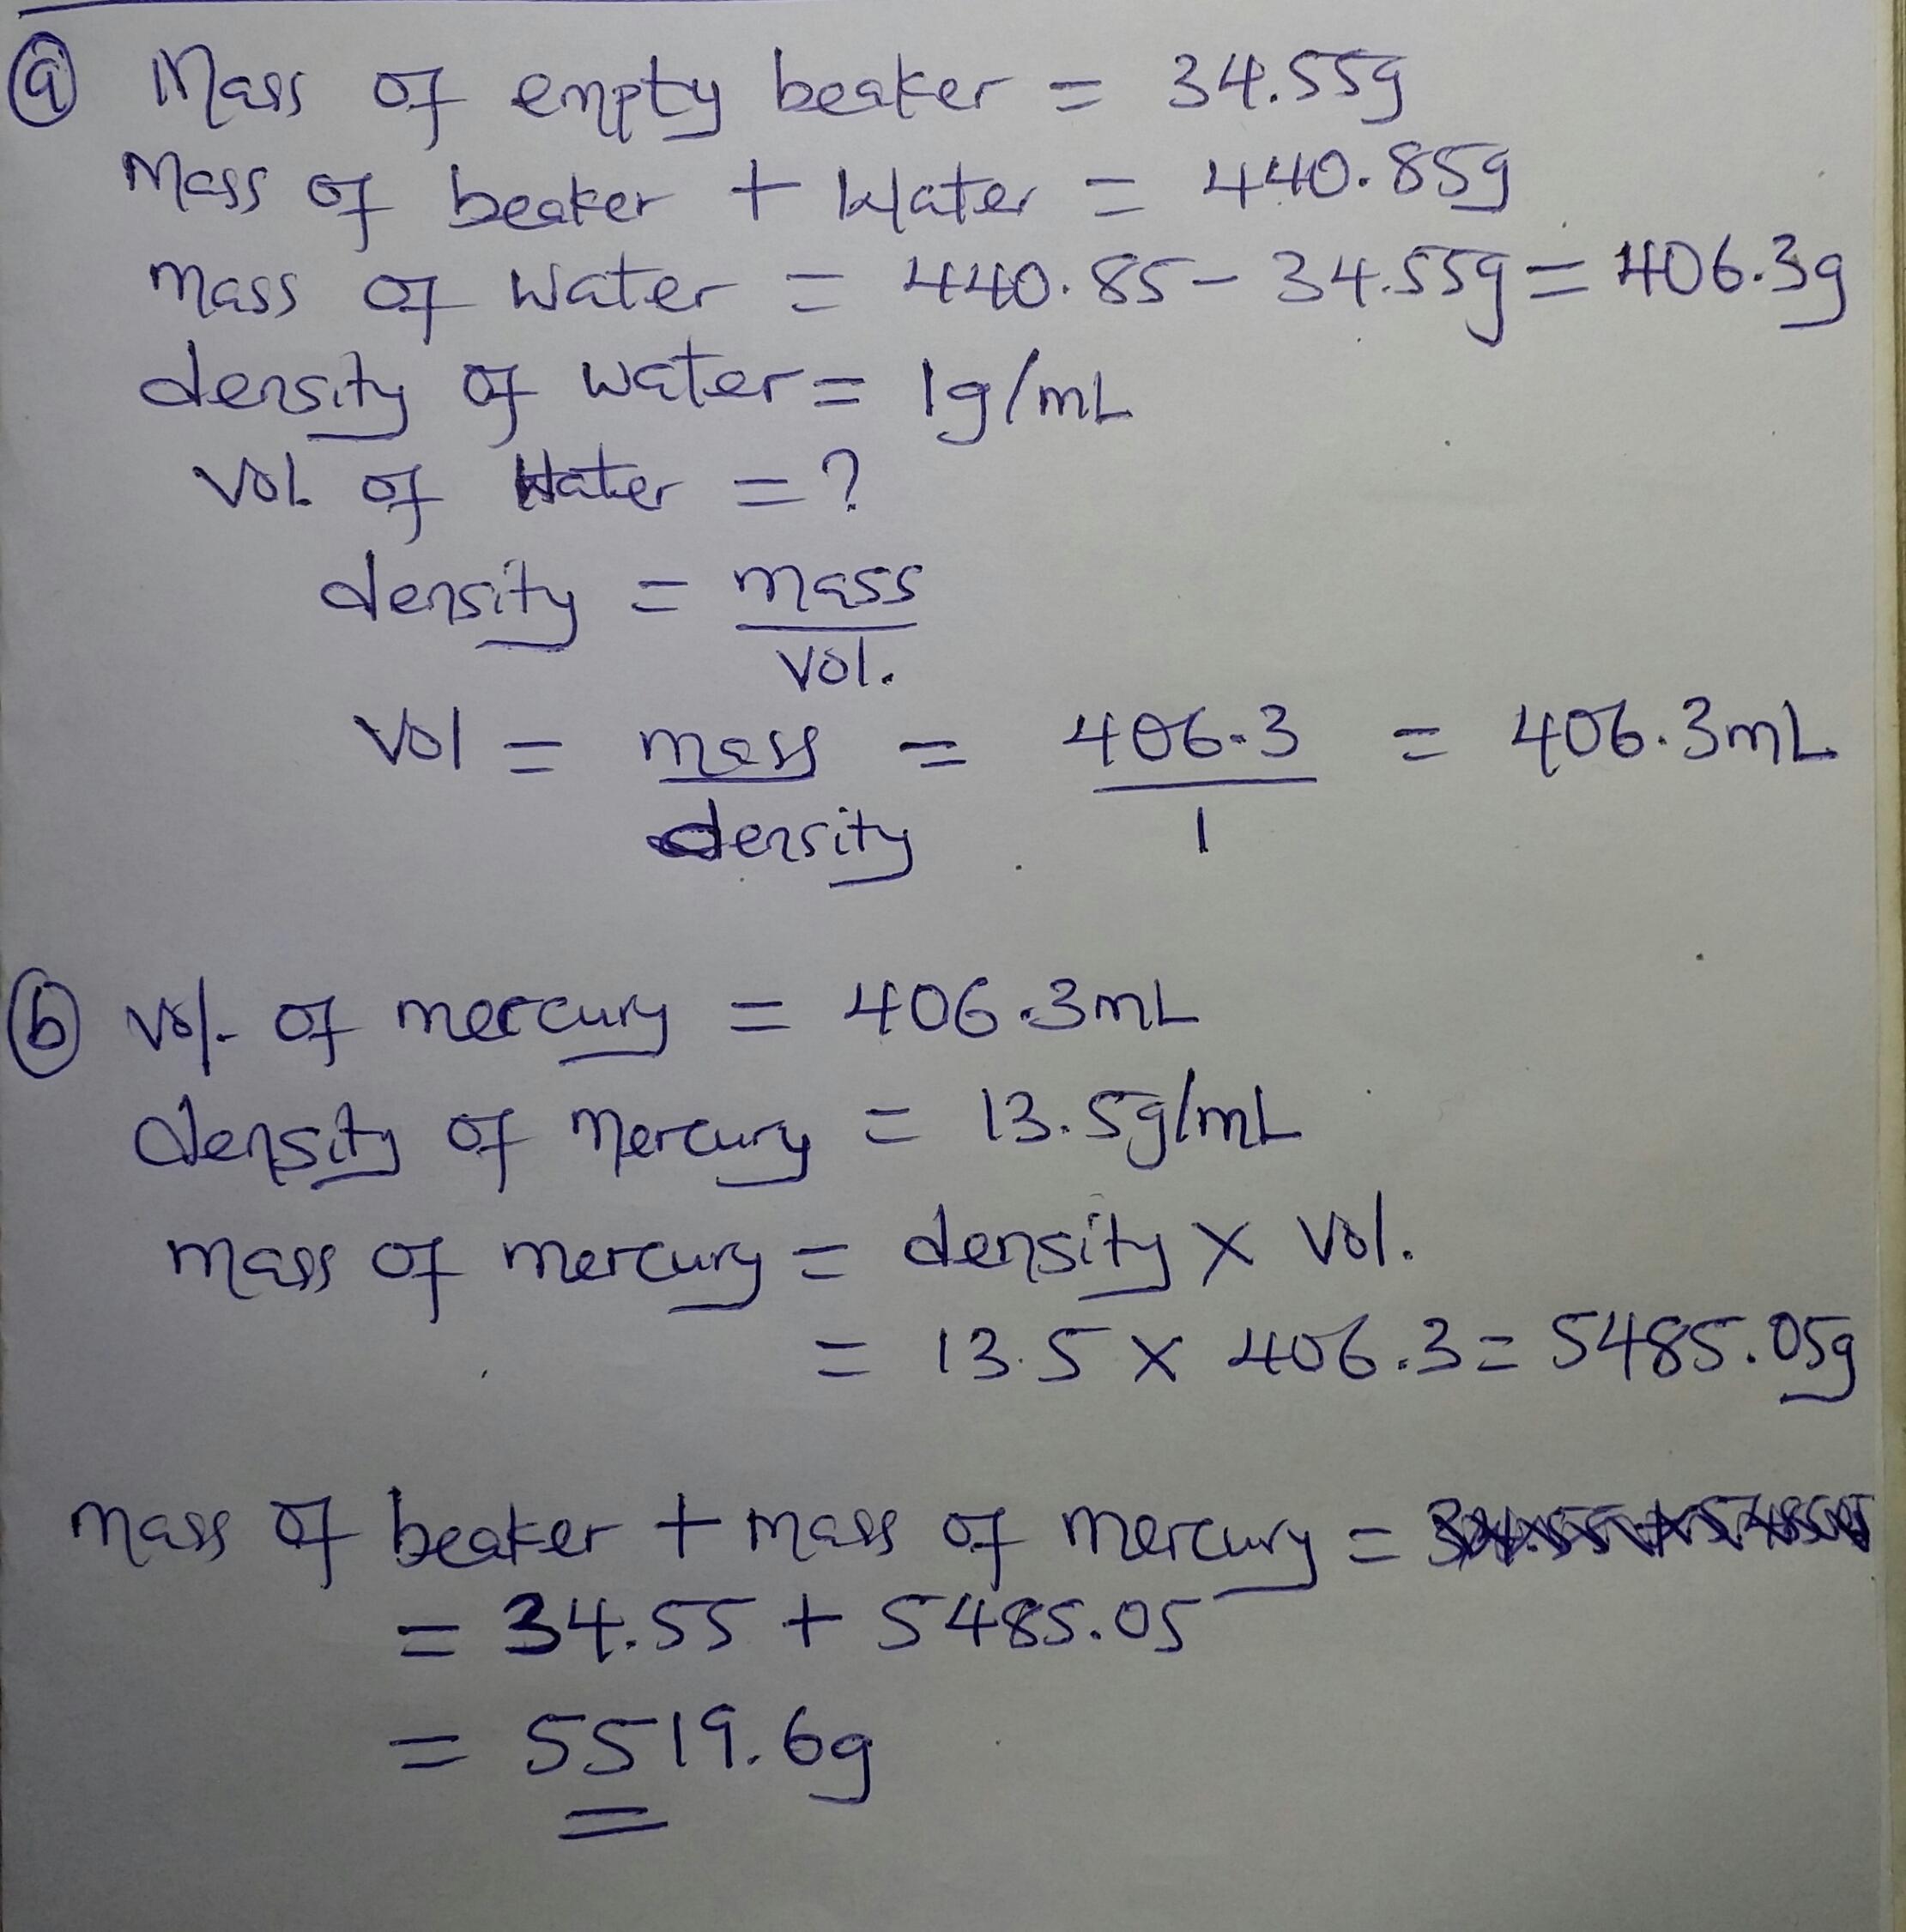 ⓐ Mass of empty beaker = 34.55g
Mass of beaker + Water = 440.85g
Mass of Water = 440.85 - 34.55g = 406.3g
density of water = 1g/mL
Vol. of Water = ?
density = mass
vol.
Vol = mass = 406.3 = 406.3mL
density 1
ⓑ Vol. of mercury = 406.3mL
density of mercury = 13.5g/mL
mass of mercury = density x Vol.
= 13.5 x 406.3 = 5485.05g
mass of beaker + mass of mercury =
= 34.55 + 5485.05
= 5519.6g